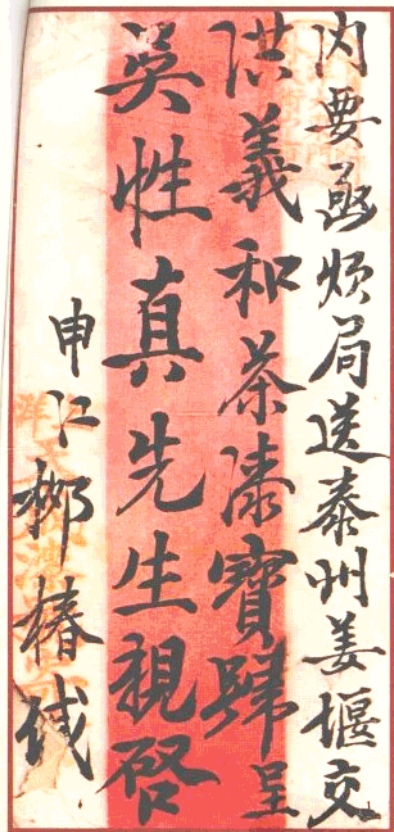 内要函煩局送泰州姜堰交
洪義和茶漆寶號呈
吳性真先生親啓
申江 椿緘